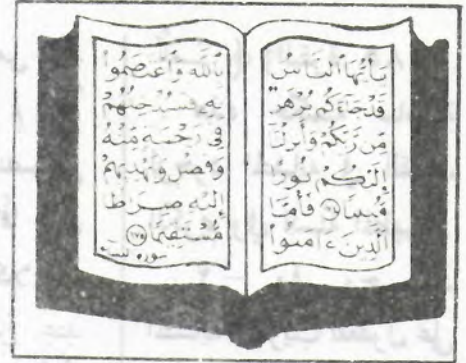 يَـٰٓأَيُّهَا ٱلنَّاسُ
قَدْ جَآءَكُم بُرْهَـٰنٌ
مِّن رَّبِّكُمْ وَأَنزَلْنَآ
إِلَيْكُمْ نُورًا
مُّبِينًا ۝١٧٤ فَأَمَّا
ٱلَّذِينَ ءَامَنُوا۟
بِٱللَّهِ وَٱعْتَصَمُوا۟
بِهِۦ فَسَيُدْخِلُهُمْ
فِى رَحْمَةٍ مِّنْهُ
وَفَضْلٍ وَيَهْدِيهِمْ
إِلَيْهِ صِرَٰطًا
مُّسْتَقِيمًا ۝١٧٥
سورة النساء